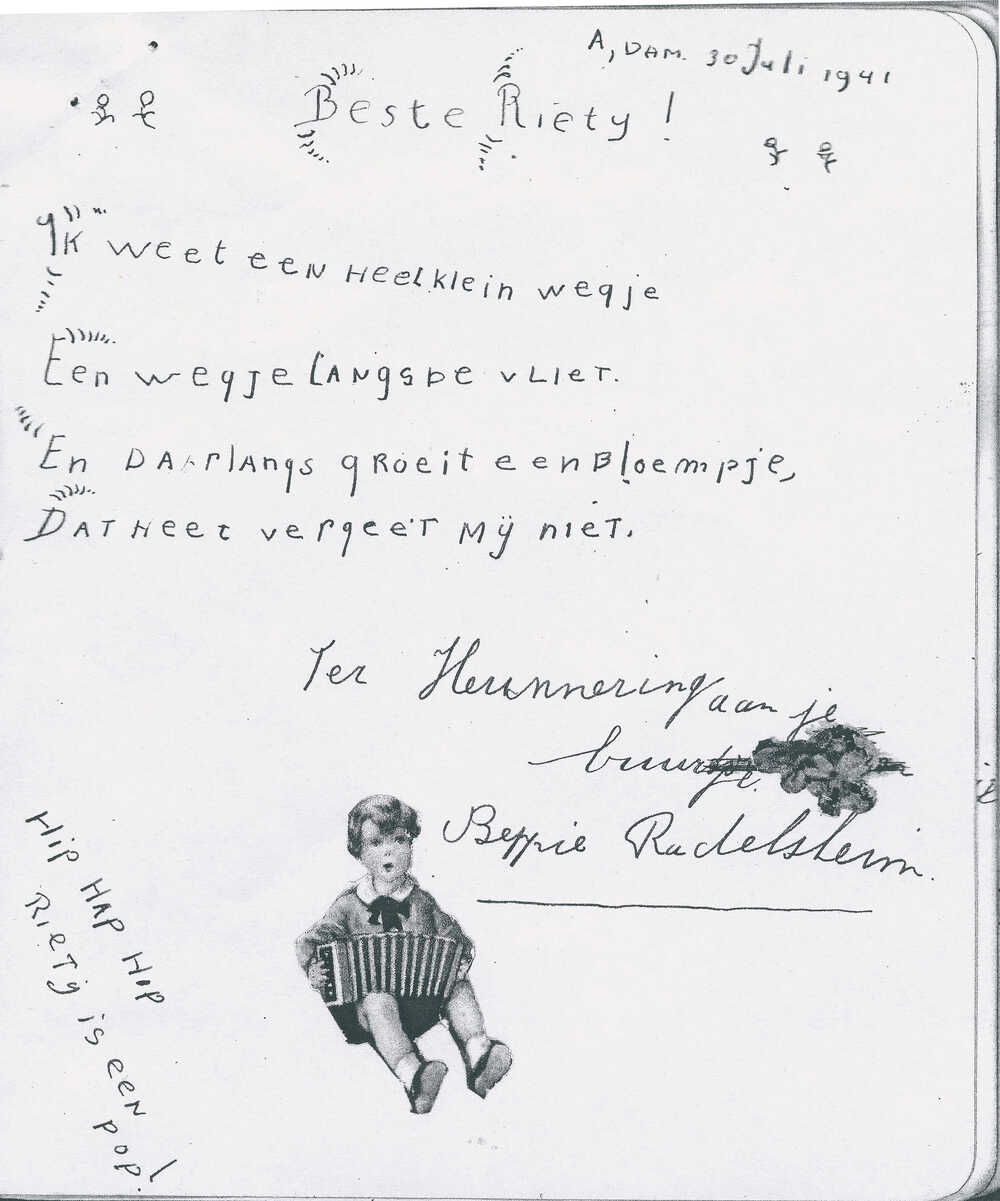 A, DAM. 30 Juli 1941
Beste Riety!
Ik weet een heel klein wegje
Een wegje langs de vliet.
En daarlangs groeit een bloempje,
Dat heet vergeet mij niet.
Ter Heunnering aan je
buurtje.
Beppie Rudelsheim.
Hip Hap Hop
Riety is een
pop!